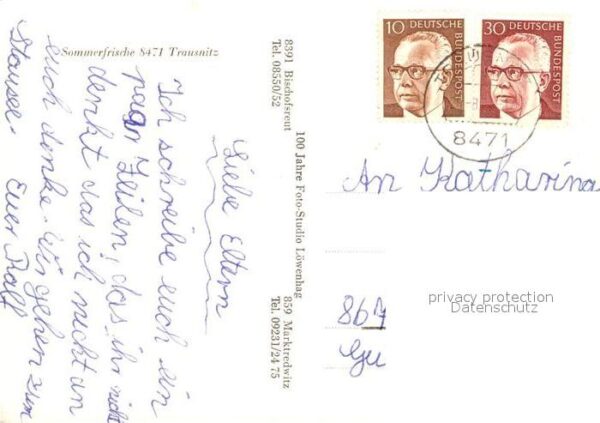 Sommerfrische 8471 Trausnitz
Liebe Eltern
Ich schreibe euch ein
paar Zeilen, das ihr nicht
denkt das ich nicht an
euch denke. Wir gehen zum
Stausee.
Euer Ralf
8391 Bischofsreut
Tel. 08550/52
100 Jahre Foto-Studio Löwenhag
859 Marktredwitz
Tel. 09231/24 75
10 DEUTSCHE BUNDESPOST
30 DEUTSCHE BUNDESPOST
8471
An Katharina
867
Gu
privacy protection
Datenschutz